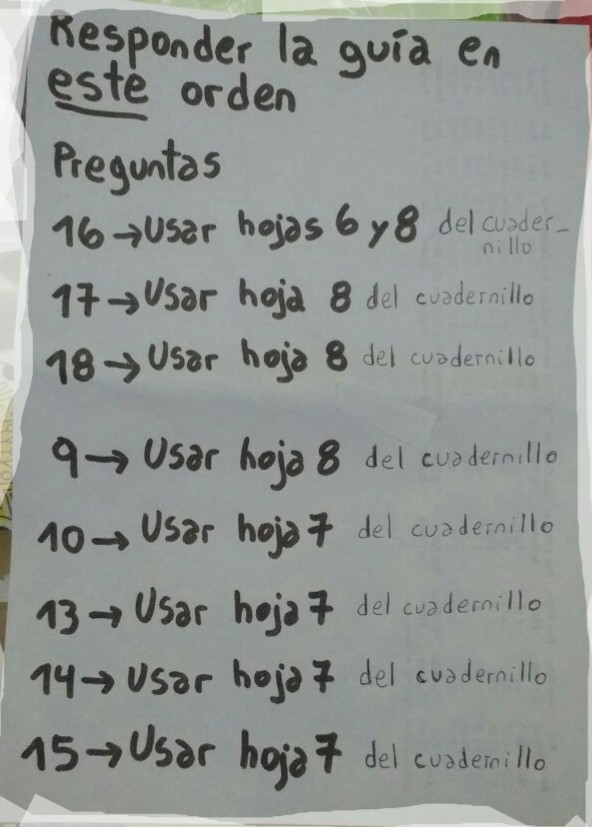 Responder la guía en
este orden
Preguntas
16→Usar hojas 6 y 8 del cuader-
nillo
17→Usar hoja 8 del cuadernillo
18→Usar hoja 8 del cuadernillo
9→ Usar hoja 8 del cuadernillo
10→ Usar hoja 7 del cuadernillo
13→ Usar hoja 7 del cuadernillo
14→ Usar hoja 7 del cuadernillo
15→Usar hoja 7 del cuadernillo